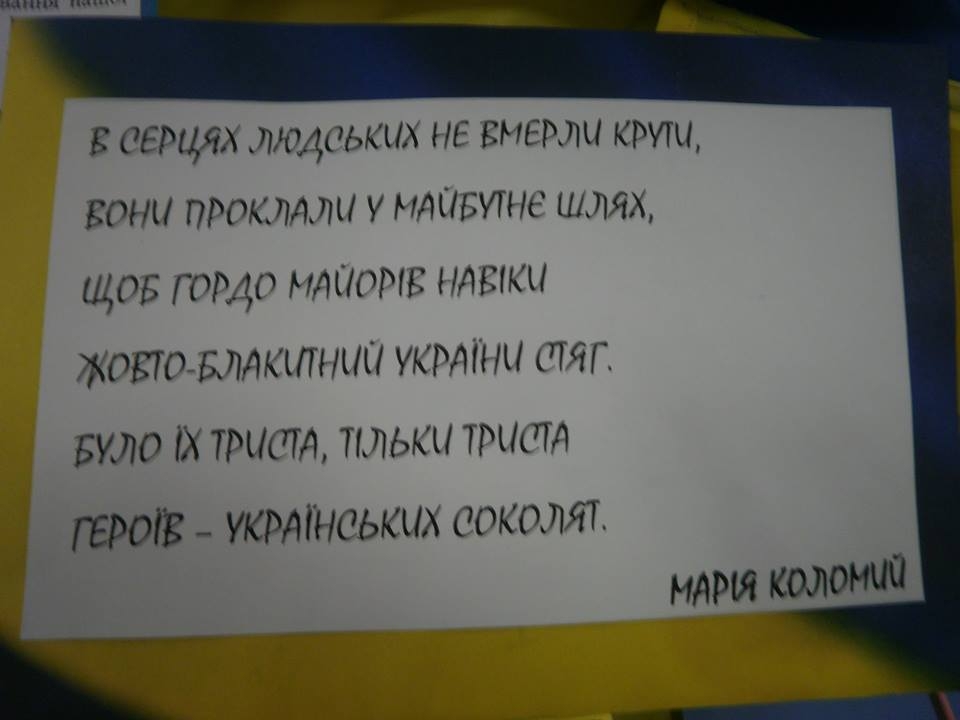 вання нашої
В СЕРЦЯХ ЛЮДСЬКИХ НЕ ВМЕРЛИ КРУТИ,
ВОНИ ПРОКЛАЛИ У МАЙБУТНЄ ШЛЯХ,
ЩОБ ГОРДО МАЙОРІВ НАВІКИ
ЖОВТО-БЛАКИТНИЙ УКРАЇНИ СТЯГ.
БУЛО ЇХ ТРИСТА, ТІЛЬКИ ТРИСТА
ГЕРОЇВ – УКРАЇНСЬКИХ СОКОЛЯТ.
МАРІЯ КОЛОМИЙ